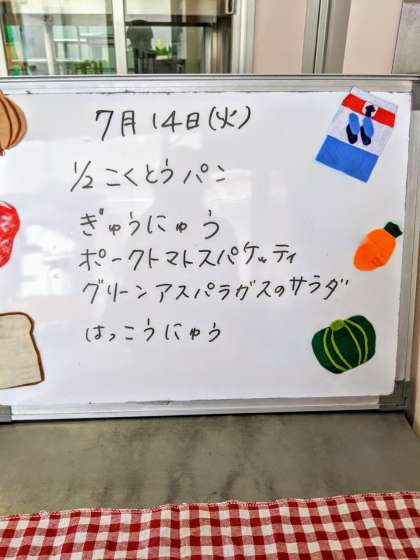 7月14日(火)
1/2 こくとうパン
ぎゅうにゅう
ポークトマトスパゲッティ
グリーンアスパラガスのサラダ
はっこうにゅう